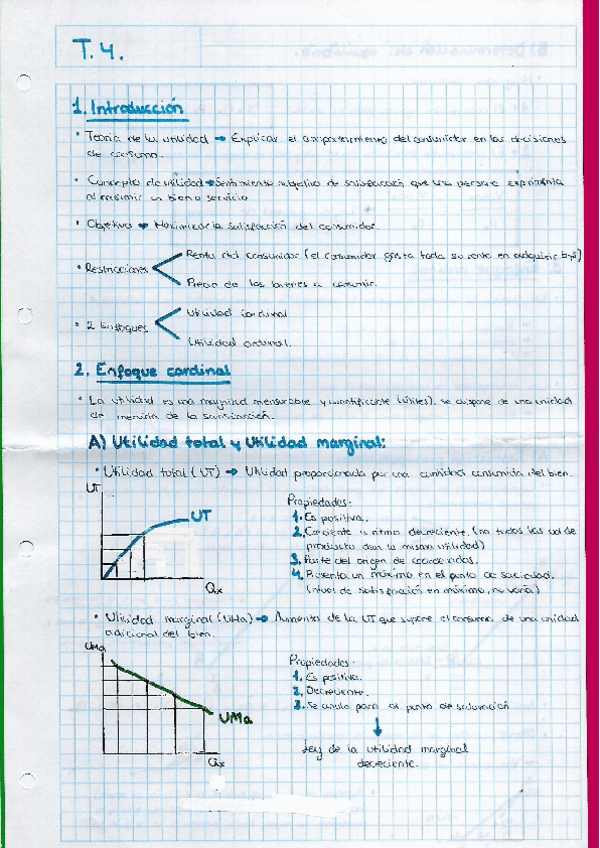 T.4.
1. Introducción
• Teoría de la utilidad → Explicar el comportamiento del consumidor en las decisiones
de consumo.
• Concepto de utilidad → Sentimiento subjetivo de satisfacción que una persona experimenta
al consumir un bien o servicio
• Objetivo → Maximizar la satisfacción del consumidor.
• Restricciones
Renta del consumidor (el consumidor gasta toda su renta en adquirir byS)
Precio de los bienes a consumir.
• 2 Enfoques
Utilidad cardinal
Utilidad ordinal.
2. Enfoque cardinal
• La utilidad es una magnitud mensurable y cuantificable (útiles), se dispone de una unidad
de medida de la satisfacción.
A) Utilidad total y Utilidad marginal:
• Utilidad total (UT) → Utilidad proporcionada por una cantidad consumida del bien.
UT
UT
Qx
Propiedades:
1. Es positiva.
2. Creciente a ritmo decreciente (no todas las uds de
producto dan la misma utilidad)
3. Parte del origen de coordenadas.
4. Presenta un máximo en el punto de saciedad.
(nivel de satisfacción en máximo, no varía)
• Utilidad marginal (UMa) → Aumento de la UT que supone el consumo de una unidad
adicional del bien.
UMa
UMa
Qx
Propiedades:
1. Es positiva.
2. Decreciente.
3. Se anula para el punto de saturación
↓
Ley de la utilidad marginal
decreciente.